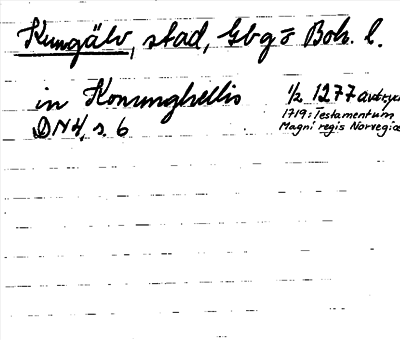 Kungälv, stad, Gbg o Boh. l.
in Konunghellis 1/2 1277 avtryck
1719: Testamentum
DN4, s. 6 Magni regis Norvegiæ